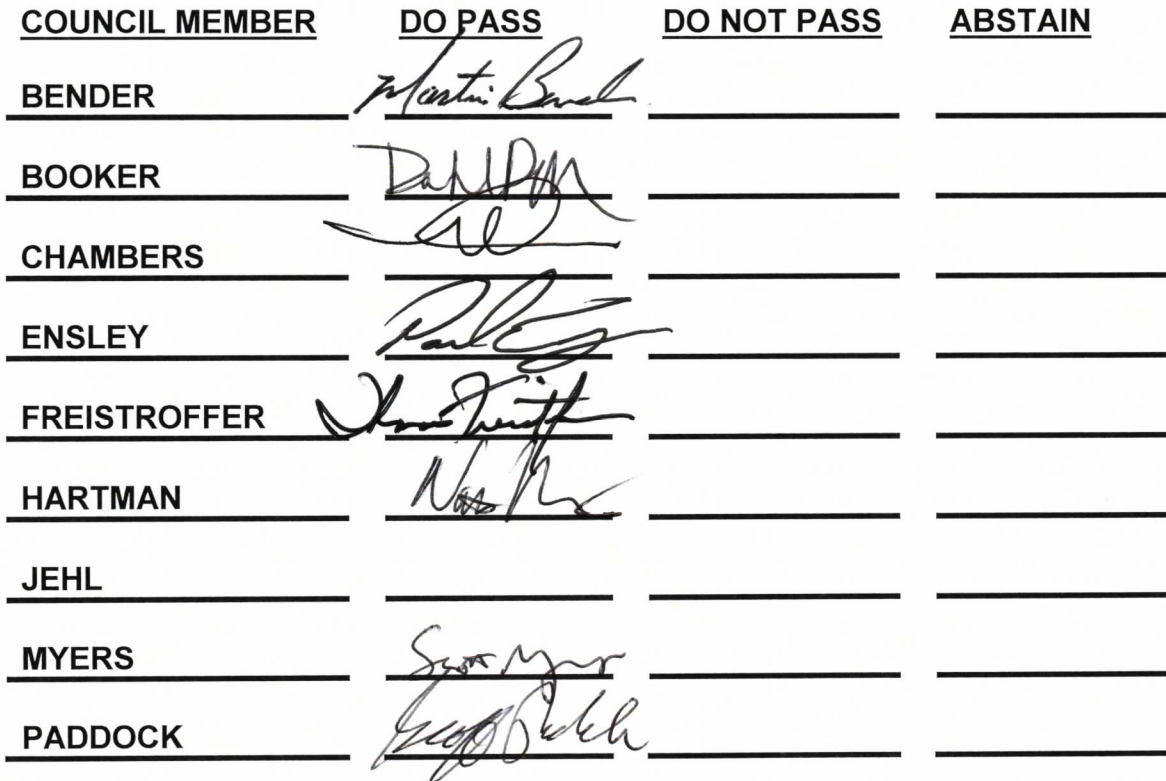 COUNCIL MEMBER DO PASS DO NOT PASS ABSTAIN
BENDER Martin Bender
BOOKER
CHAMBERS
ENSLEY Paul
FREISTROFFER Thomas Freistroffer
HARTMAN
JEHL
MYERS Scott Myers
PADDOCK Geoff Paddock